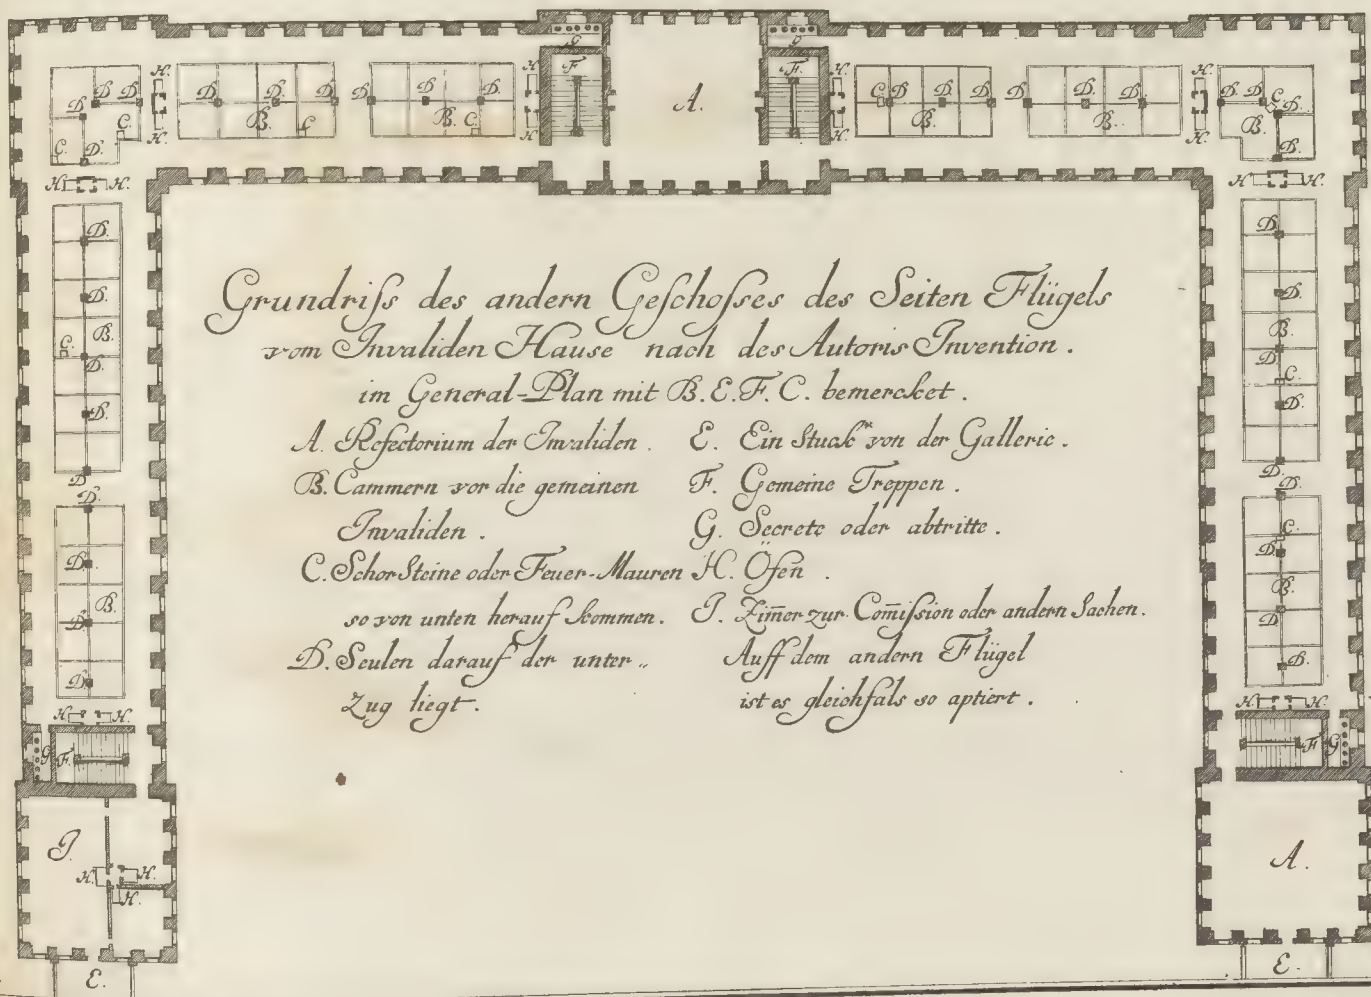 Grundriſs des andern Geſchoſses des Seiten Flügels
vom Invaliden Hause nach des Autoris Invention.
im General-Plan mit B.E.F.C. bemercket.
A. Refectorium der Invaliden.
B. Cammern vor die gemeinen
Invaliden.
C. Schor Steine oder Feuer-Mauren
so von unten herauf kommen.
D. Seulen darauf der unter„
Zug liegt.
E. Ein stuck von der Gallerie.
F. Gemeine Treppen.
G. Secrete oder abtritte.
H. Öfen.
J. Zim̄er zur Com̄iſsion oder andern Sachen.
Auff dem andern Flügel
ist es gleichfals so aptiert.
G
F
A.
F.
H.
H.
D.
D.
D.
B.
C
D.
D.
B.
C
H
H
C
D.
D.
B.
D.
D.
B.
H.
H.
D.
C
D.
B.
D.
C.
C.
D.
H
H.
H.
H.
D.
D.
B.
C.
D.
D.
D
D.
D.
B.
D.
D.
H
H.
G
F
J.
H.
H.
H.
E.
D.
D.
B.
D.
C.
D.
D.
D.
C.
D.
B.
D.
B.
H.
H.
F
G
A.
E.